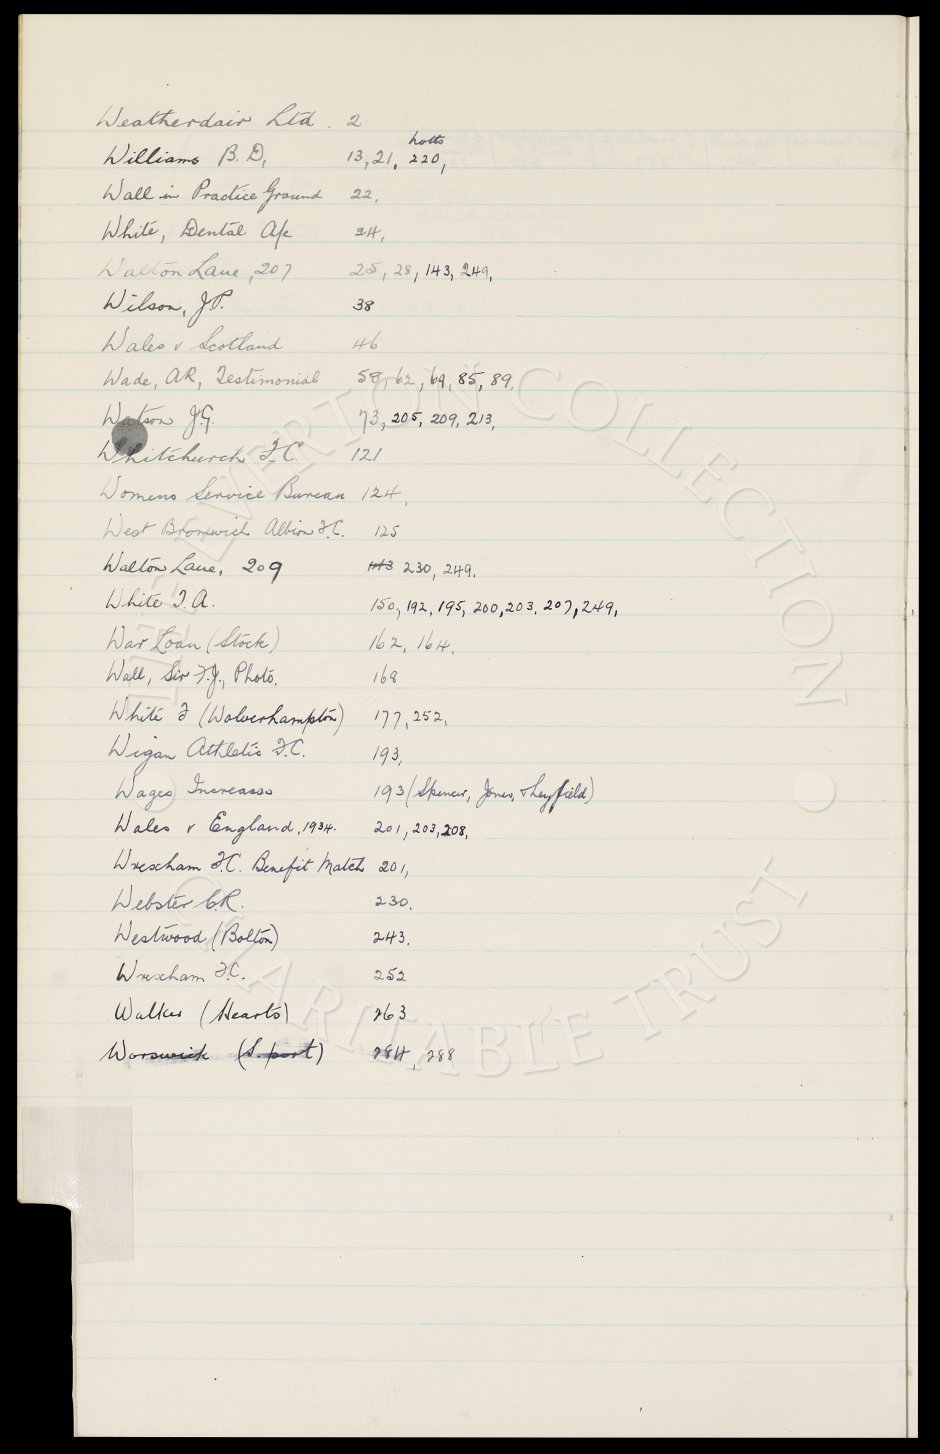 Weatherdair Ltd. 2
Williams B.D, 13, 21, Notts 220,
Wall in Practice Ground 22,
White, Dental A/c 24,
Walton Lane, 207 25, 28, 143, 249,
Wilson, J.P. 38
Wales v Scotland 46
Wade, A.R, Testimonial 58, 62, 69, 85, 89,
Watson J.G. 73, 205, 209, 213,
Whitchurch F.C. 121
Womens Service Bureau 124,
West Bromwich Albion F.C. 125
Walton Lane, 209 143 230, 249.
White T.A. 150, 192, 195, 200, 203, 207, 249,
War Loan (Stock) 162, 164,
Wall, Sir F.J., Photo. 168
White F (Wolverhampton) 177, 252,
Wigan Athletic F.C. 193,
Wages Increases 193 (Spencer, Jones, & Leyfield)
Wales v England, 1934. 201, 203, 208,
Wrexham F.C. Benefit Match 201,
Webster C.R. 230.
Westwood (Bolton) 243.
Wrexham F.C. 252
Walker (Hearts) 263
Worswick (S.port) 284, 288
THE EVERTON COLLECTION
CHARITABLE TRUST